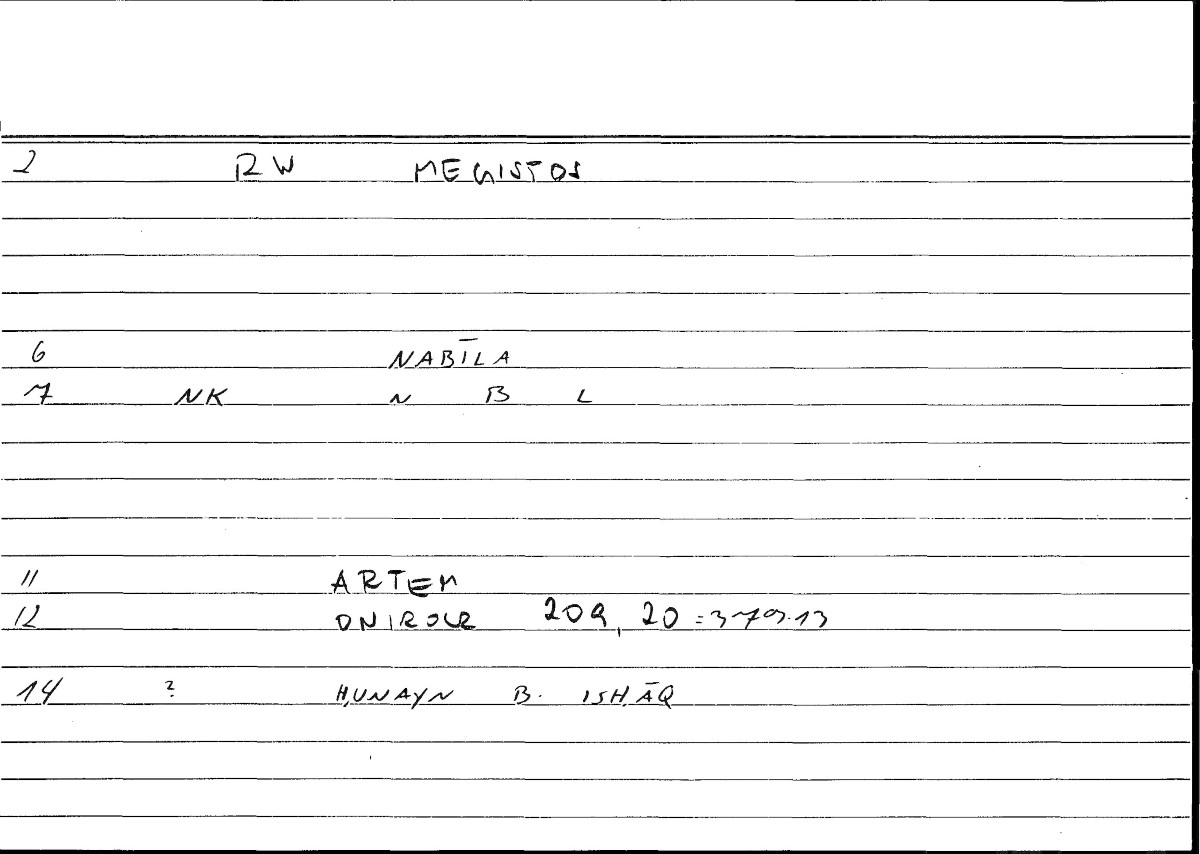 2 RW MEGISTOS
6 NABĪLA
7 NK N B L
11 ARTEM
12 ONIROCR 209, 20 = 379.13
14 ? ḤUNAYN B. ISḤĀQ